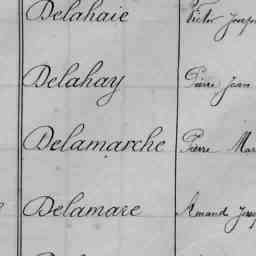 Delahaie Victor
Delahay Pierre Jean
Delamarche Pierre
Delamare Amand